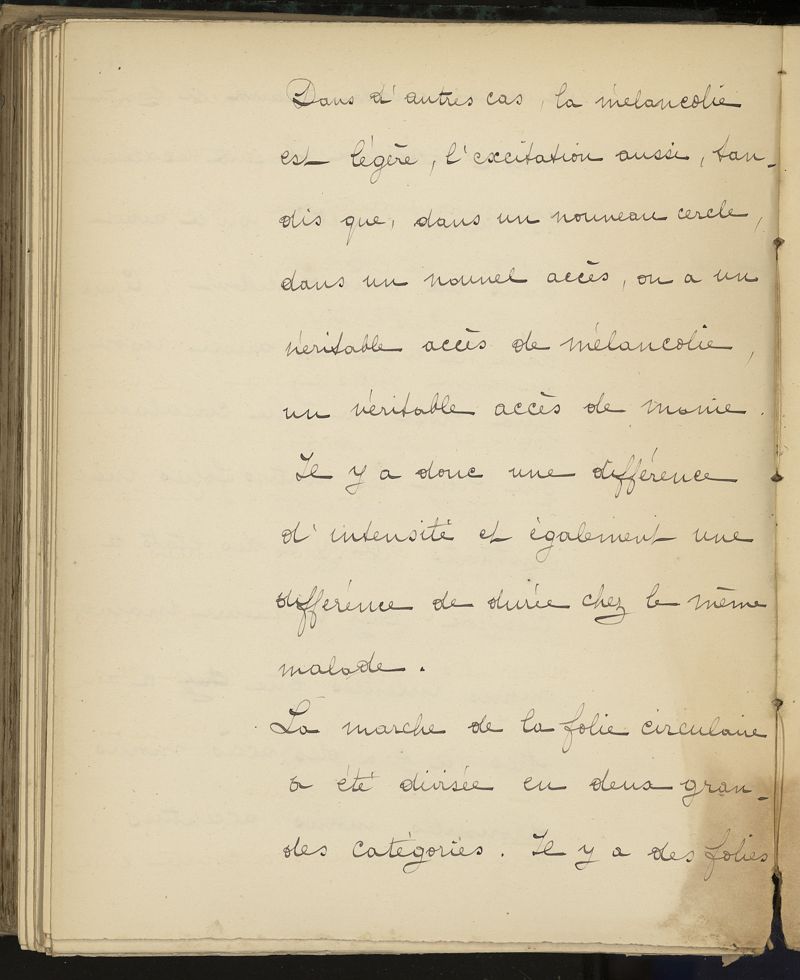 Dans d'autres cas, la mélancolie
est légère, l'excitation aussi, tan-
dis que, dans un nouveau cercle,
dans un nouvel accès, on a un
véritable accès de mélancolie,
un véritable accès de manie.
Il y a donc une différence
d'intensité et également une
différence de durée chez le même
malade.
La marche de la folie circulaire
a été divisée en deux gran-
des catégories. Il y a des folies